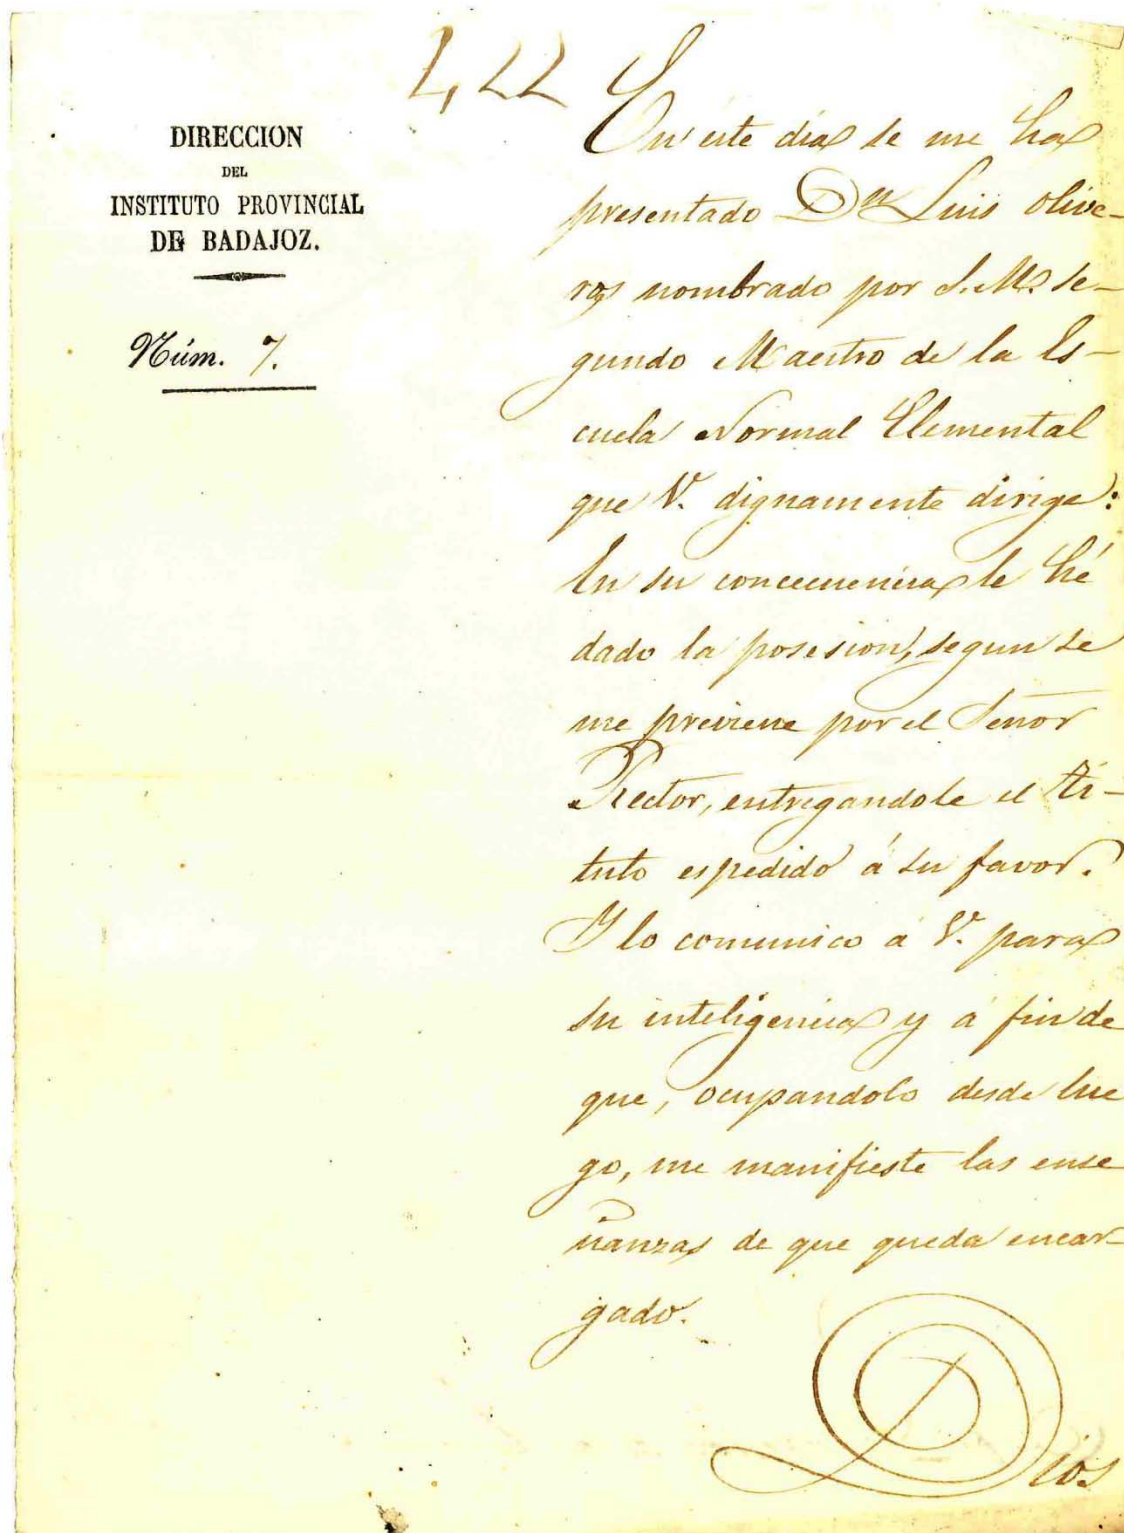 1,22
DIRECCION
DEL
INSTITUTO PROVINCIAL
DE BADAJOZ.
Núm. 7.
En éste dia se me ha
presentado Dn Luis Olive-
ros nombrado por S. M. se-
gundo Maestro de la Es-
cuela Normal Elemental
que V. dignamente dirige:
En su concecuencia le hé
dado la posesion, segun se
me previene por el Señor
Rector, entregandole el tí-
tulo espedido á su favor.
Y lo comunico á V. para
su inteligencia y á fin de
que, ocupandolo desde lue
go, me manifieste las ense
ñanzas de que queda encar-
gado.
Dios